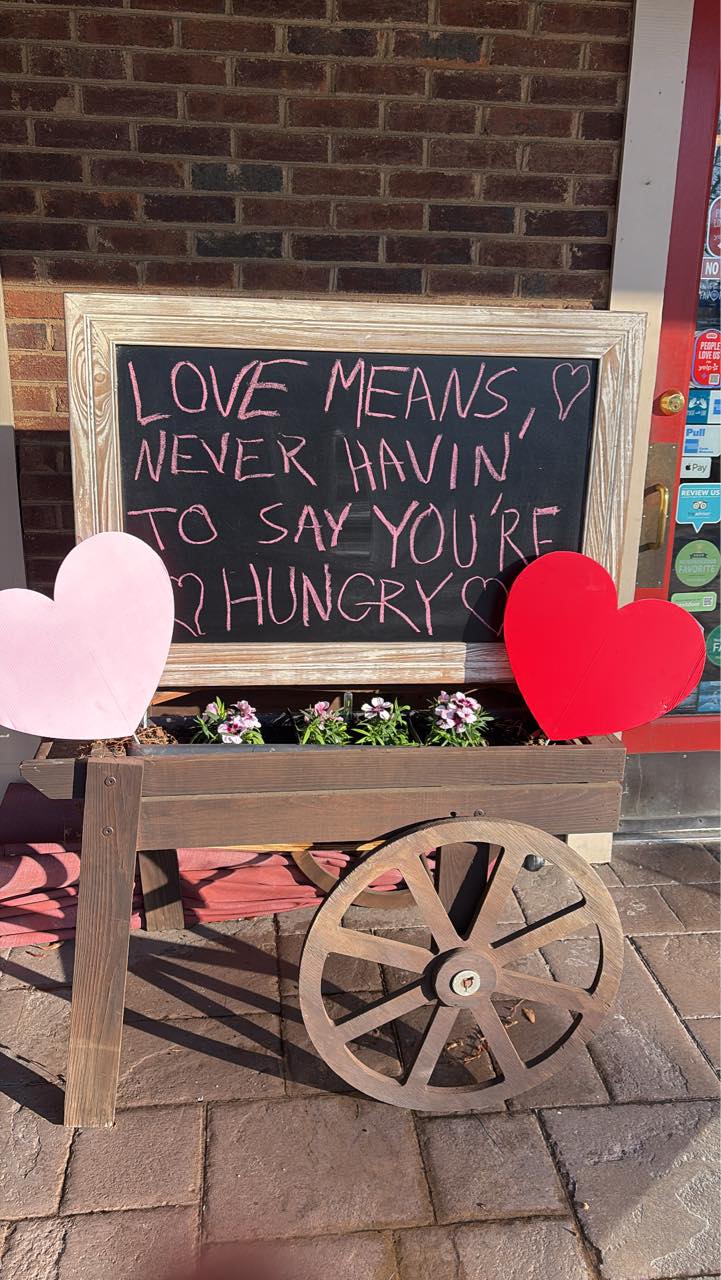 LOVE MEANS,
NEVER HAVIN'
TO SAY YOU'RE
HUNGRY
NO
PEOPLE
LOVE US
yelp
Pull
Pay
REVIEW US
FAVORITE